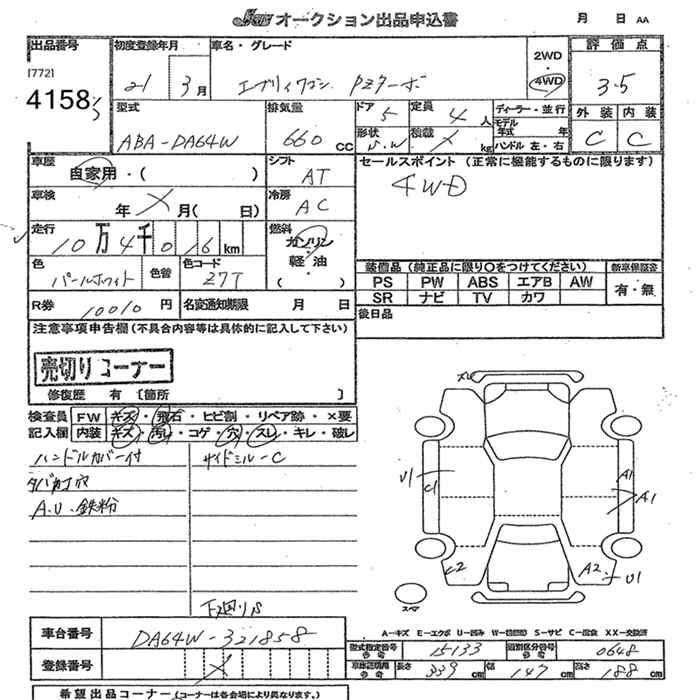 JU オークション出品申込書 月 日 AA
出品番号 初度登録年月 車名・グレード 2WD・4WD 評価点
[772]
4158 21 3月 エブリィワゴン PZターボ 3.5
型式 排気量 ドア 5 定員 4人 ディーラー・並行 外装 内装
モデル年式 年
ABA-DA64W 660 CC 形状 V.W 積載 kg ハンドル 左・右 C C
車歴 自家用・( ) シフト AT セールスポイント (正常に機能するものに限ります)
車検 年 月( 日) 冷房 AC 4WD
走行 10万4千016km 燃料 ガソリン・軽油 ( )
色 パールホワイト 色替 色コード Z7T
装備品 (純正品に限り○をつけてください) 新車保証書
PS PW ABS エアB AW 有・無
SR ナビ TV カワ
R券 10010円 名変通知期限 月 日 後日品
注意事項申告欄(不具合内容等は具体的に記入して下さい)
売切りコーナー
修復歴 有 〔箇所 〕
検査員 FW キズ・飛石・ヒビ割・リペア跡・×要
記入欄 内装 キズ・汚れ・コゲ・穴・スレ・キレ・破レ
ハンドルカバー付 サイドミラーC
タバコ穴
A.U.鉄粉
下廻りS
ズレ
U1 C1 A1 A1
C2 A2 U1
スマ
A-キズ E-エクボ U-凹み S-サビ C-腐食 XX-交換済
車台番号 DA64W-321858
型式指定番号 参考 15133 類別区分番号 参考 0648
登録番号
車庫証明用 参考 長さ 339cm 幅 147cm 高さ 188cm
希望出品コーナー (コーナーは各会場により異なります。)